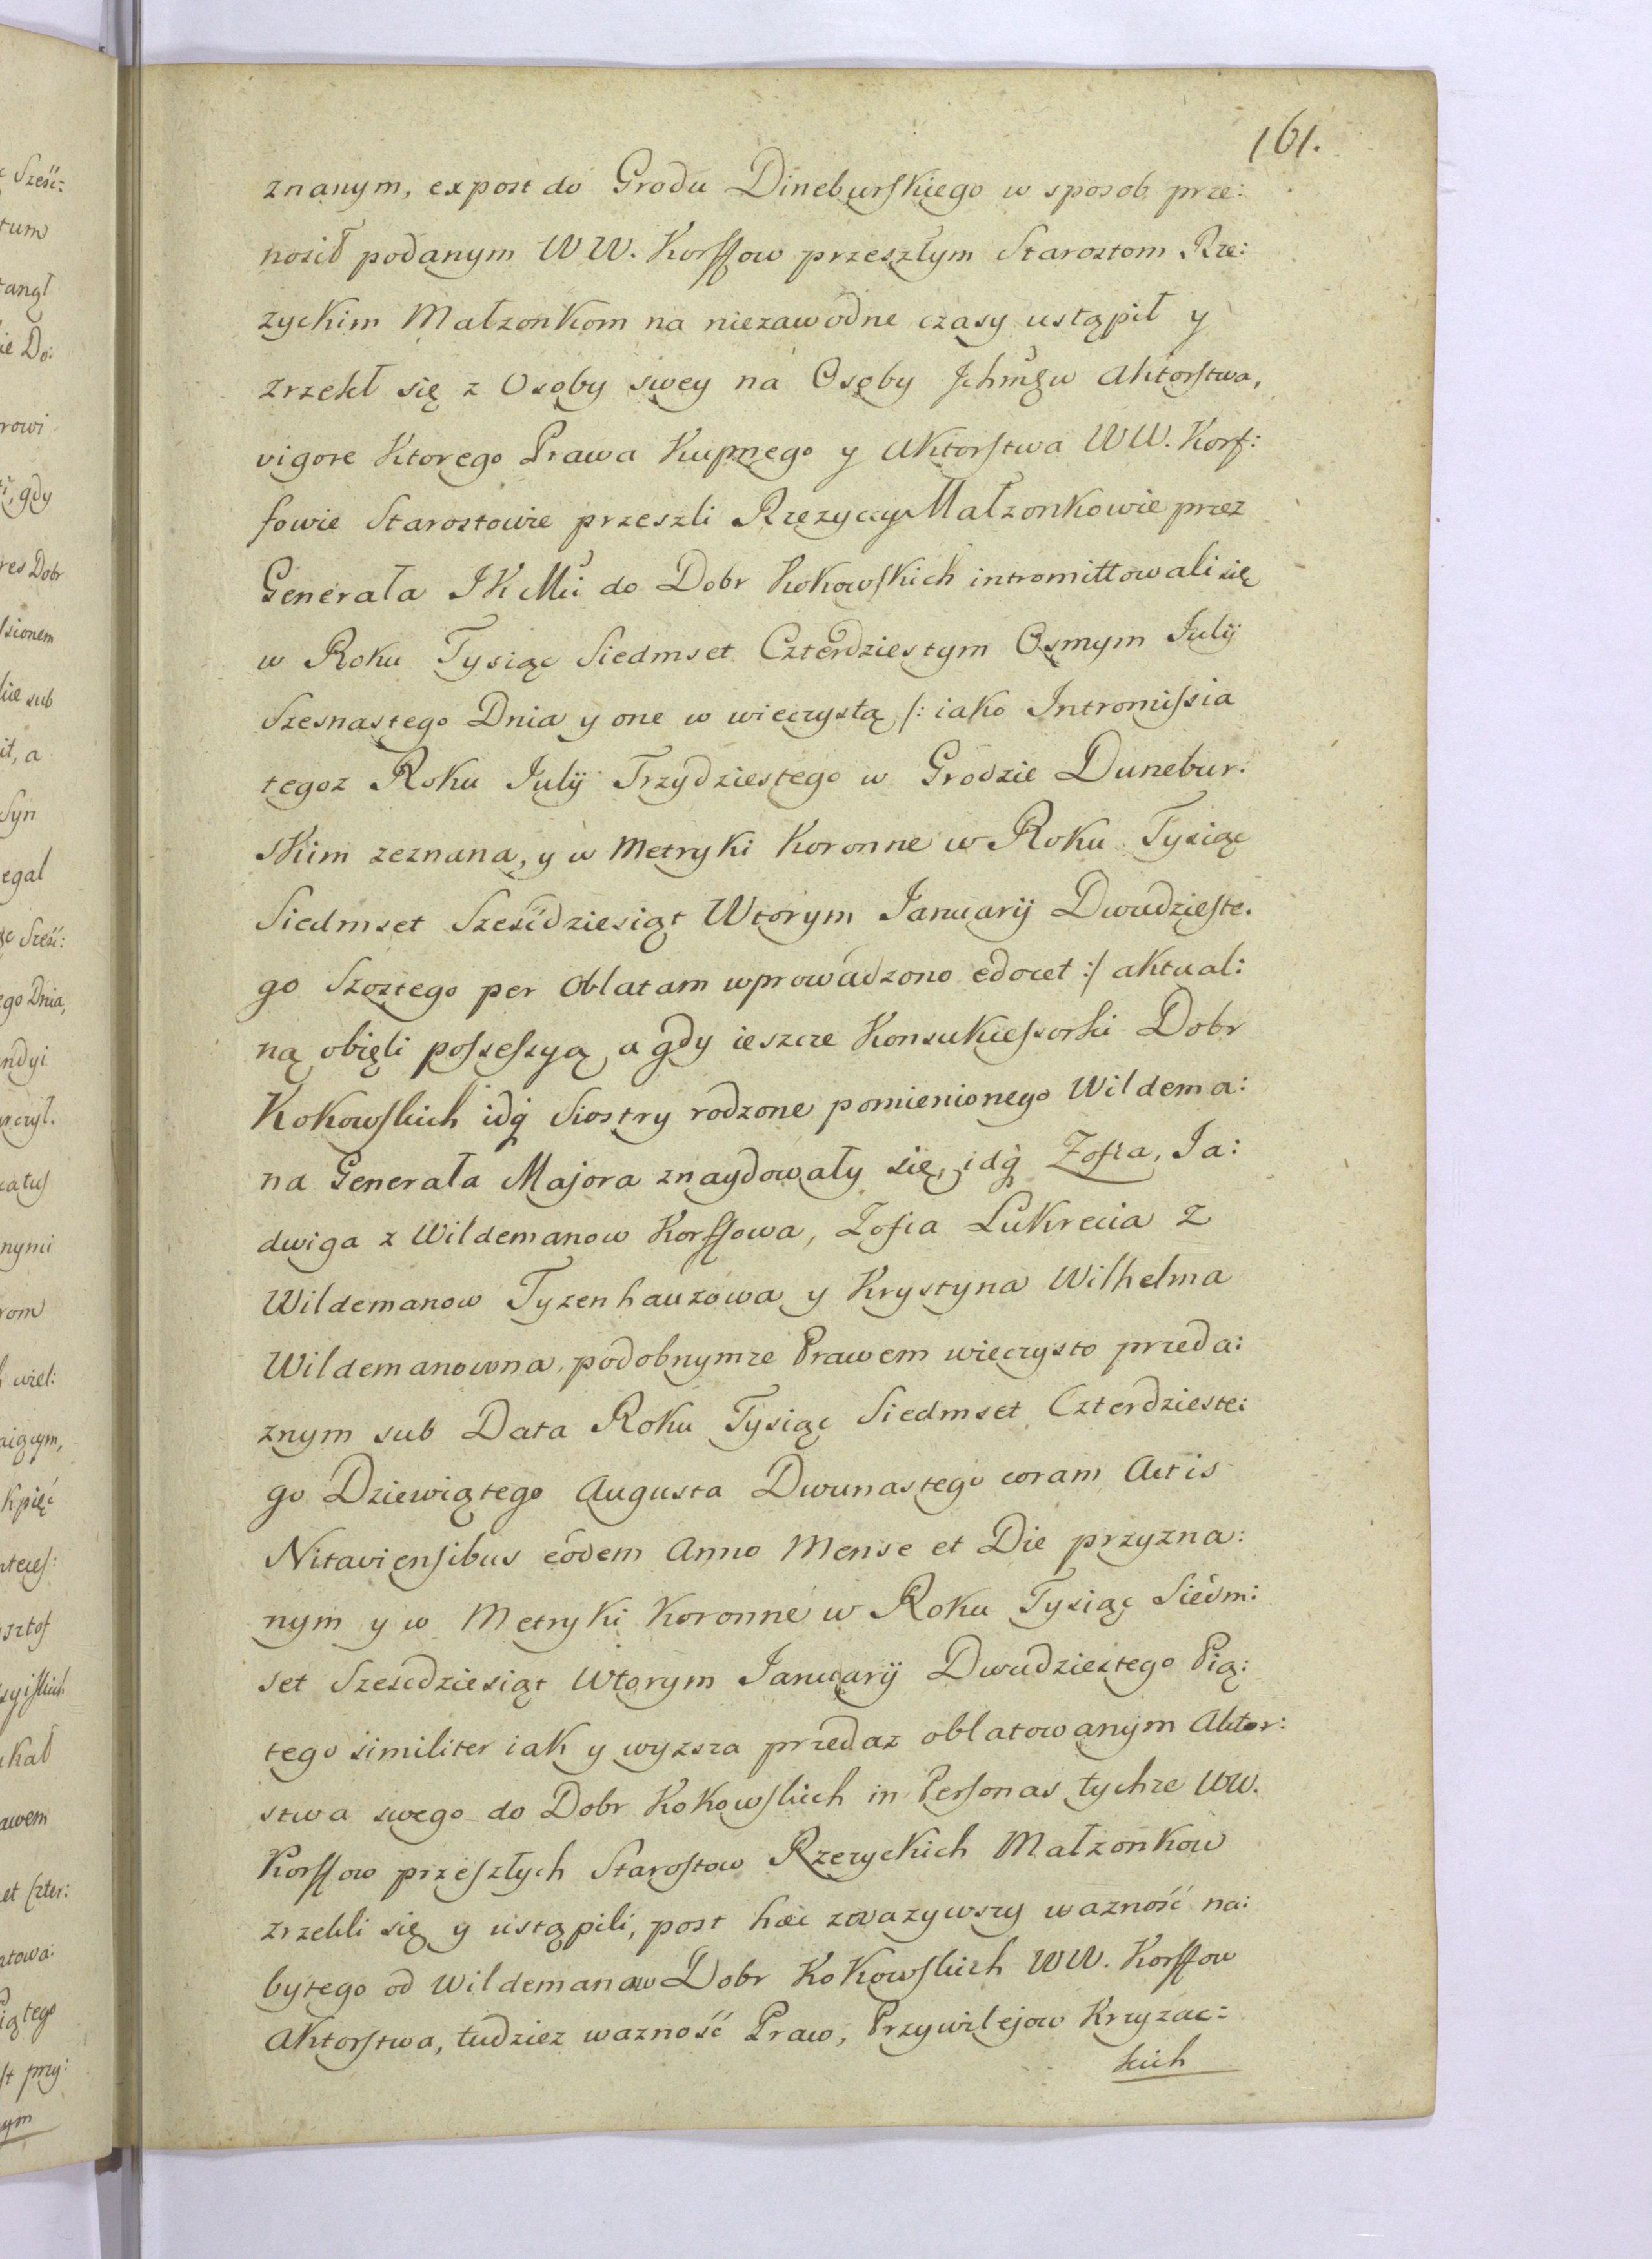 161.
znanym, expost do Grodu Dineburskiego w sposob prze:
nosił podanym WW. Korffow przeszłym Starostom Rze:
zyckim Małzonkom na niezawodne czasy ustąpił y
zrzekł się z Osoby swey na Osoby Ichmciw Aktorstwa,
vigore Ktorego Prawa Kupnego y Aktorstwa WW. Korf:
fowie Starostowie przeszli Rzezyccy Małzonkowie przez
Generała JKMci do Dobr Kokowskich intromittowali się
w Roku Tysiąc Siedmset Czterdziestym Osmym Julij
Szesnastego Dnia y one w wieczystą /: iako Intromissia
tegoz Roku Julij Trzydziestego w Grodzie Dunebur:
skim zeznana, y w Metryki Koronne w Roku Tysiąc
Siedmset Sześćdziesiąt Wtorym Januarij Dwudzieste:
go Szostego per Oblatam wprowadzono edocet :/ aktual:
ną obięli possessyą, a gdy ieszcze Konsukcessorki Dobr
Kokowskich idq Siostry rodzone pomienionego Wildema:
na Generała Majora znaydowały się, idq Zofia, Ja:
dwiga z Wildemanow Korffowa, Zofia Lukrecia z
Wildemanow Tyzenhauzowa y Krystyna Wilhelma
Wildemanowna, podobnymze Prawem wieczysto przeda:
znym sub Data Roku Tysiąc Siedmset Czterdzieste:
go Dziewiątego Augusta Dwunastego coram Actis
Nitaviensibus eodem Anno Mense et Die przyzna:
nym y w Metryki Koronne w Roku Tysiąc Siedm:
set Sześcdziesiąt Wtorym Januarij Dwudziestego Pią:
tego similiter iak y wyzsza przedaz oblatowanym Aktor:
stwa swego do Dobr Kokowskich in Personas tychze WW.
Korffow przeszłych Starostow Rzezyckich Małzonkow
zrzekli się y ustąpili, post hæc zwazywszy wazność na:
bytego od Wildemanow Dobr Kokowskich WW. Korffow
Aktorstwa, tudziez wazność Praw, Przywilejow Krzyzac:
kich